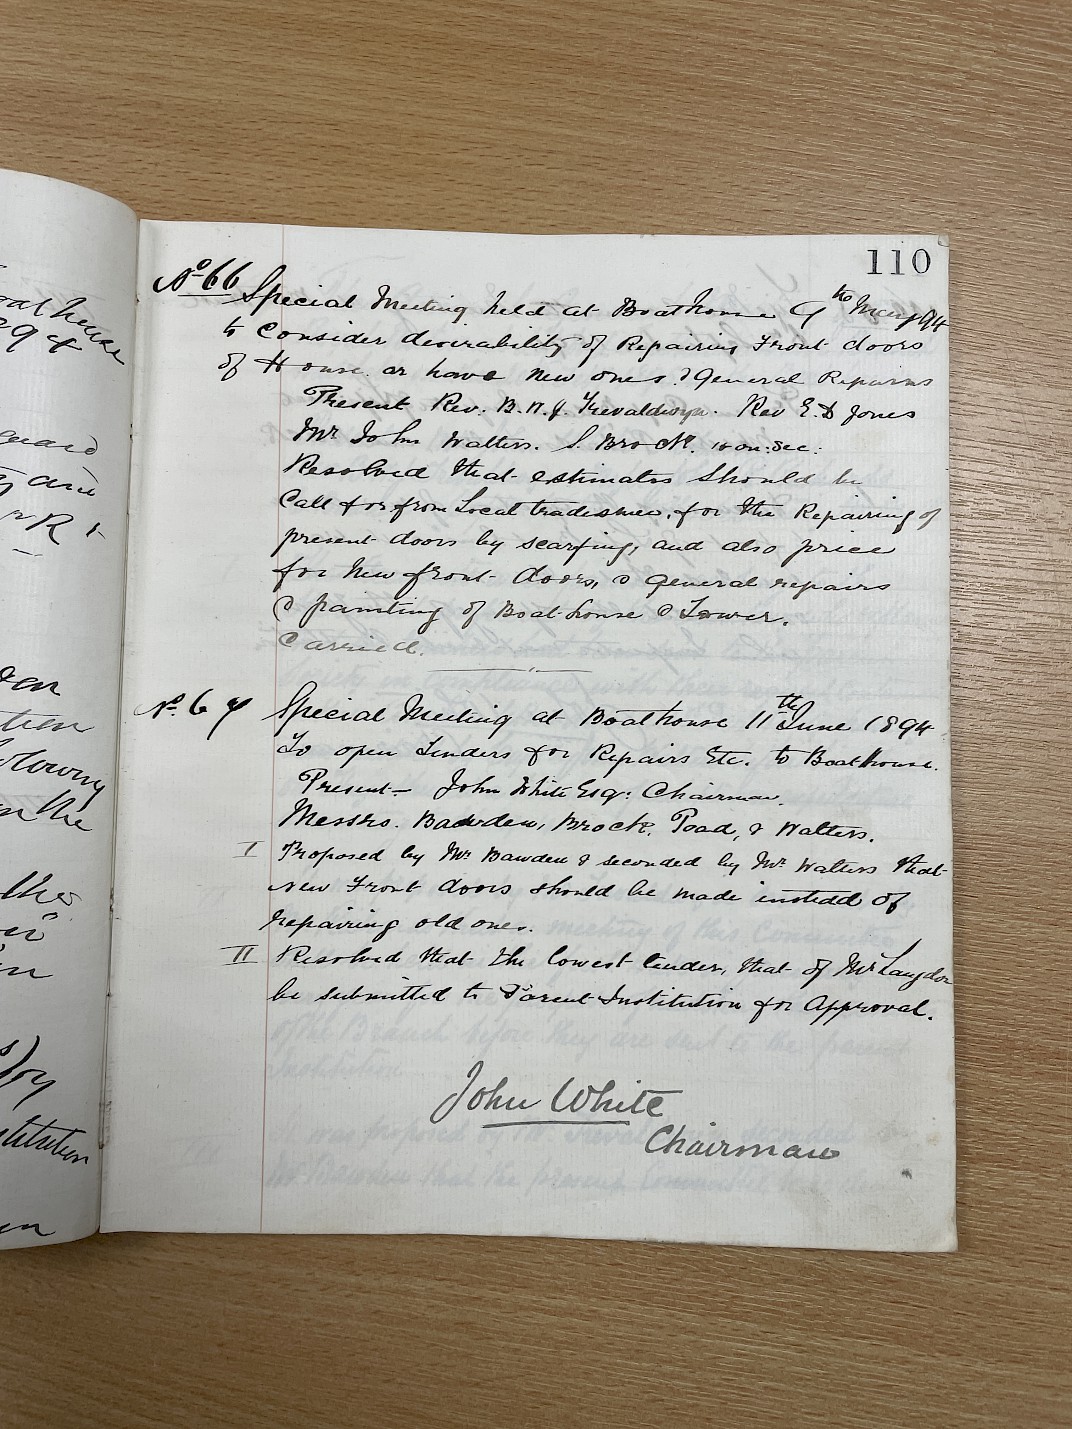 110
No. 66 Special Meeting held at Boathouse 9th May 94
to Consider desirability of Repairing Front doors
of House. or have New ones. & General Repairs
Present Rev. Rev E. D Jones
Mr John Walters. S. Brock. Hon: Sec:
Resolved that estimates should be
Call for from Local tradesmen, for the Repairing of
present doors by scarfing, and also price
for New front doors, & general repairs
& painting of Boathouse & Tower.
Carried.
No. 67 Special Meeting at Boathouse 11th June 1894
To open Tenders for Repairs Etc. to Boathouse.
Present – John White Esq: Chairman.
Messrs. Bawden, Brock, Poad, & Walters.
I Proposed by Mr Bawden & seconded by Mr Walters that
New Front doors should be made instead of
repairing old ones.
II Resolved that the lowest tender, that of Mr Langdon
be submitted to Parent Institution for Approval.
John White
Chairman